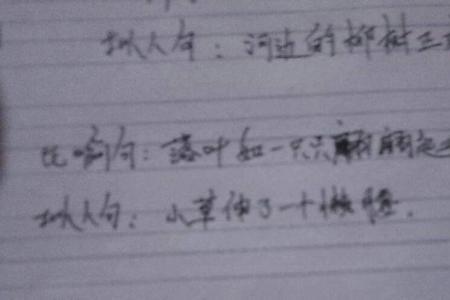 拟人句：河边的柳树正
比喻句：落叶如一只只翩翩起
拟人句：小草伸了一个懒腰.